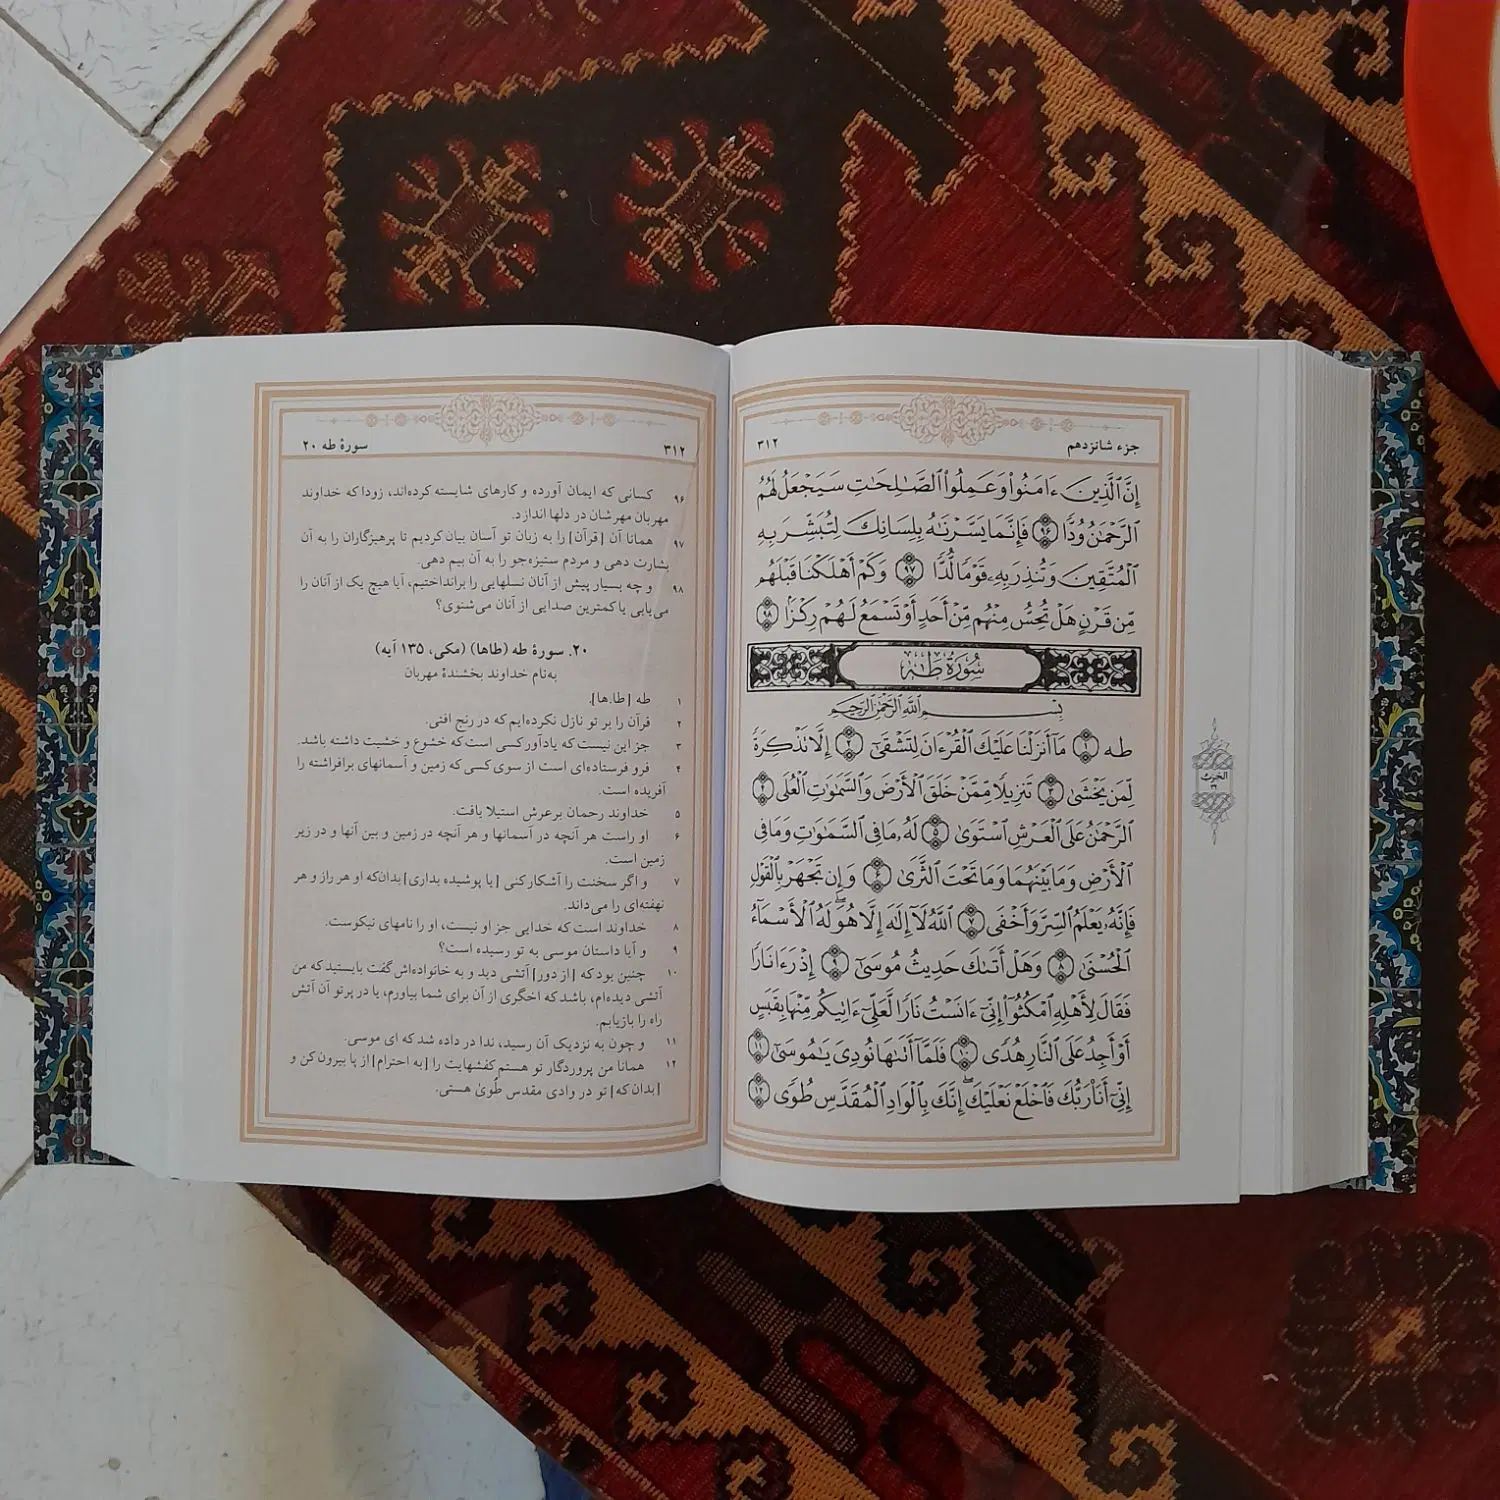 جزء شانزدهم
۳۱۲
إِنَّ ٱلَّذِينَ ءَامَنُواْ وَعَمِلُواْ ٱلصَّـٰلِحَـٰتِ سَيَجۡعَلُ لَهُمُ
ٱلرَّحۡمَـٰنُ وُدًّا ۹۶ فَإِنَّمَا يَسَّرۡنَـٰهُ بِلِسَانِكَ لِتُبَشِّرَ بِهِ
ٱلۡمُتَّقِينَ وَتُنذِرَ بِهِۦ قَوۡمًا لُّدًّا ۹۷ وَكَمۡ أَهۡلَكۡنَا قَبۡلَهُم
مِّن قَرۡنٍ هَلۡ تُحِسُّ مِنۡهُم مِّنۡ أَحَدٍ أَوۡ تَسۡمَعُ لَهُمۡ رِكۡزَۢا ۹۸
سُورَةُ طه
بِسۡمِ ٱللَّهِ ٱلرَّحۡمَـٰنِ ٱلرَّحِيمِ
طه ۱ مَآ أَنزَلۡنَا عَلَيۡكَ ٱلۡقُرۡءَانَ لِتَشۡقَىٰٓ ۲ إِلَّا تَذۡكِرَةً
لِّمَن يَخۡشَىٰ ۳ تَنزِيلًا مِّمَّنۡ خَلَقَ ٱلۡأَرۡضَ وَٱلسَّمَـٰوَٰتِ ٱلۡعُلَى ۴
ٱلرَّحۡمَـٰنُ عَلَى ٱلۡعَرۡشِ ٱسۡتَوَىٰ ۵ لَهُۥ مَا فِي ٱلسَّمَـٰوَٰتِ وَمَا فِي
ٱلۡأَرۡضِ وَمَا بَيۡنَهُمَا وَمَا تَحۡتَ ٱلثَّرَىٰ ۶ وَإِن تَجۡهَرۡ بِٱلۡقَوۡلِ
فَإِنَّهُۥ يَعۡلَمُ ٱلسِّرَّ وَأَخۡفَى ۷ ٱللَّهُ لَآ إِلَـٰهَ إِلَّا هُوَۖ لَهُ ٱلۡأَسۡمَآءُ
ٱلۡحُسۡنَىٰ ۸ وَهَلۡ أَتَىٰكَ حَدِيثُ مُوسَىٰٓ ۹ إِذۡ رَءَا نَارًا
فَقَالَ لِأَهۡلِهِ ٱمۡكُثُوٓاْ إِنِّيٓ ءَانَسۡتُ نَارًا لَّعَلِّيٓ ءَاتِيكُم مِّنۡهَا بِقَبَسٍ
أَوۡ أَجِدُ عَلَى ٱلنَّارِ هُدًى ۱۰ فَلَمَّآ أَتَىٰهَا نُودِيَ يَـٰمُوسَىٰٓ ۱۱
إِنِّيٓ أَنَا۠ رَبُّكَ فَٱخۡلَعۡ نَعۡلَيۡكَ إِنَّكَ بِٱلۡوَادِ ٱلۡمُقَدَّسِ طُوًى ۱۲
الحزب
۳۱۲
سورهٔ طه ۲۰
۹۶ کسانی که ایمان آورده و کارهای شایسته کرده‌اند، زودا که خداوند
مهربان مهرشان در دلها اندازد.
۹۷ همانا آن [قرآن] را به زبان تو آسان بیان کردیم تا پرهیزگاران را به آن
بشارت دهی و مردم ستیزه‌جو را به آن بیم دهی.
۹۸ و چه بسیار پیش از آنان نسلهایی را برانداختیم، آیا هیچ یک از آنان را
می‌یابی یا کمترین صدایی از آنان می‌شنوی؟
۲۰. سورهٔ طه (طاها) (مکی، ۱۳۵ آیه)
به‌نام خداوند بخشندهٔ مهربان
۱ طه [طا.ها].
۲ قرآن را بر تو نازل نکرده‌ایم که در رنج افتی.
۳ جز این نیست که یادآور کسی است که خشوع و خشیت داشته باشد.
۴ فرو فرستاده‌ای است از سوی کسی که زمین و آسمانهای برافراشته را
آفریده است.
۵ خداوند رحمان بر عرش استیلا یافت.
۶ او راست هر آنچه در آسمانها و هر آنچه در زمین و بین آنها و در زیر
زمین است.
۷ و اگر سخنت را آشکار کنی [یا پوشیده بداری] بدان‌که او هر راز و هر
نهفته‌ای را می‌داند.
۸ خداوند است که خدایی جز او نیست، او را نامهای نیکوست.
۹ و آیا داستان موسی به تو رسیده است؟
۱۰ چنین بود که [از دور] آتشی دید و به خانواده‌اش گفت بایستید که من
آتشی دیده‌ام، باشد که اخگری از آن برای شما بیاورم، یا در پرتو آن آتش
راه را بازیابم.
۱۱ و چون به نزدیک آن رسید، ندا در داده شد که ای موسی.
۱۲ همانا من پروردگار تو هستم کفشهایت را [به احترام] از پا بیرون کن و
[بدان که] تو در وادی مقدس طُویٰ هستی.